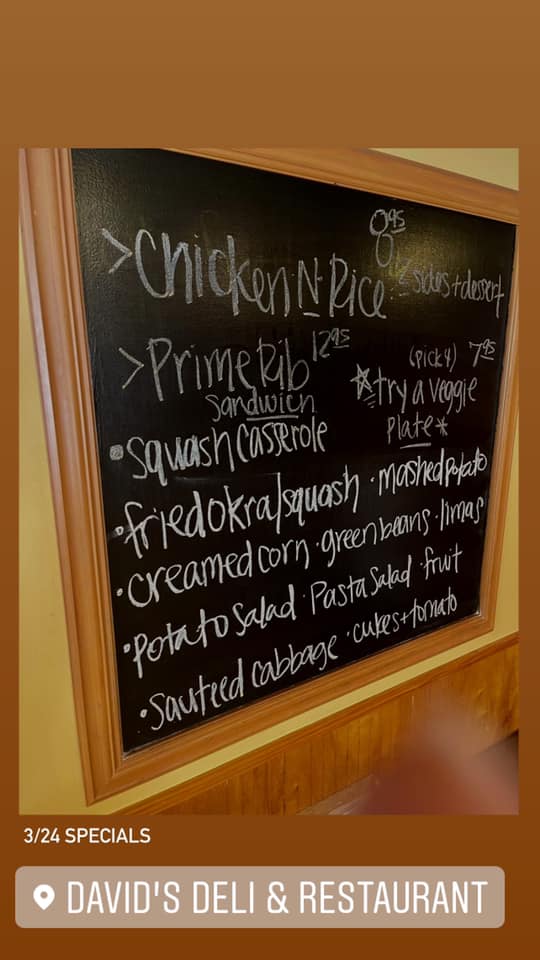 8.95
>Chicken N Rice 2 sides + dessert
>Prime Rib 12.95
Sandwich
(pick 4) 7.95
*try a veggie
Plate*
•Squash Casserole
•fried okra/squash •mashed potato
•creamed corn •green beans •limas
•Potato Salad •Pasta Salad •fruit
•Sauteed cabbage •cukes + tomato
3/24 SPECIALS
DAVID'S DELI & RESTAURANT